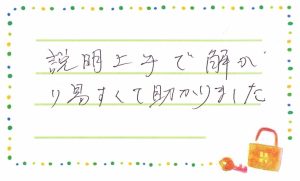 説明上手で解か
り易すくて助かりました